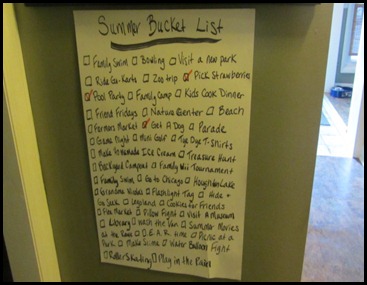 Summer Bucket List
☐ Family Swim ☐ Bowling ☐ Visit a new park
☐ Ride Go-Karts ☐ Zoo trip ☑ Pick Strawberries
☑ Pool Party ☐ Family Camp ☐ Kids Cook Dinner
☐ Friend Fridays ☐ Nature Center ☐ Beach
☐ Farmers Market ☑ Get A Dog ☐ Parade
☐ Game Night ☐ Mini Golf ☐ Tye Dye T-Shirts
☐ Make Homemade Ice Cream ☐ Treasure Hunt
☐ Backyard Campout ☐ Family Wii Tournament
☐ Family Swim ☐ Go to Chicago ☐ Houghton Lake
☐ Grandma Nicda's ☐ Flashlight Tag ☐ Hide +
Go Seek ☐ Legoland ☐ Cookies for Friends
☐ Flea Market ☐ Pillow Fight ☐ Visit A Museum
☐ Library ☐ Wash the Van ☐ Summer Movies
at the ☐ D.E.A.R. time ☐ Picnic at a
Park ☐ Make Slime ☐ Water Balloon Fight
☐ Roller Skating ☐ Play in the Rain